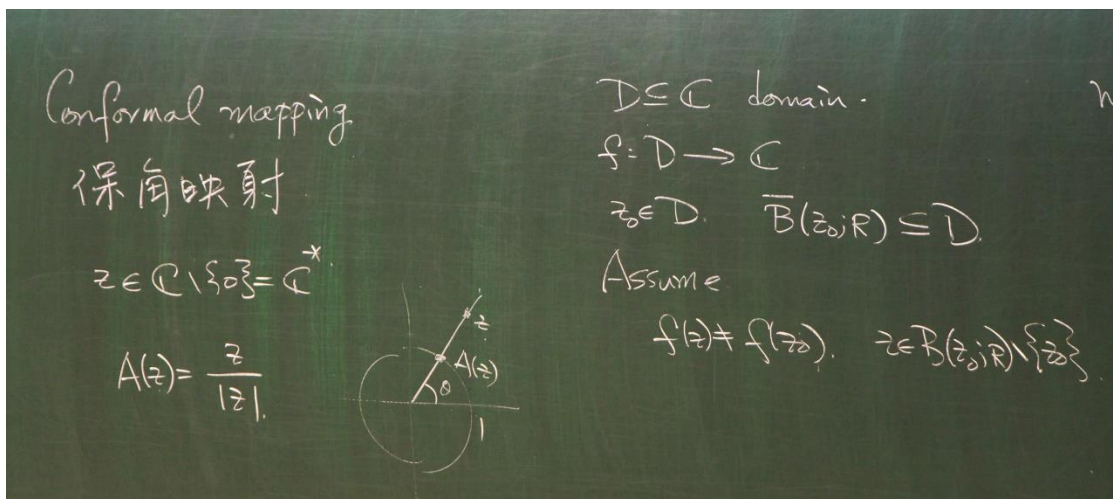 Conformal mapping
保角映射
z ∈ ℂ \ {0} = ℂ^×
A(z) = z / |z|.
z
A(z)
θ
1
D ⊆ ℂ domain.
f: D → ℂ
z₀ ∈ D. B̅(z₀; R) ⊆ D.
Assume
f(z) ≠ f(z₀). z ∈ B(z₀; R) \ {z₀}